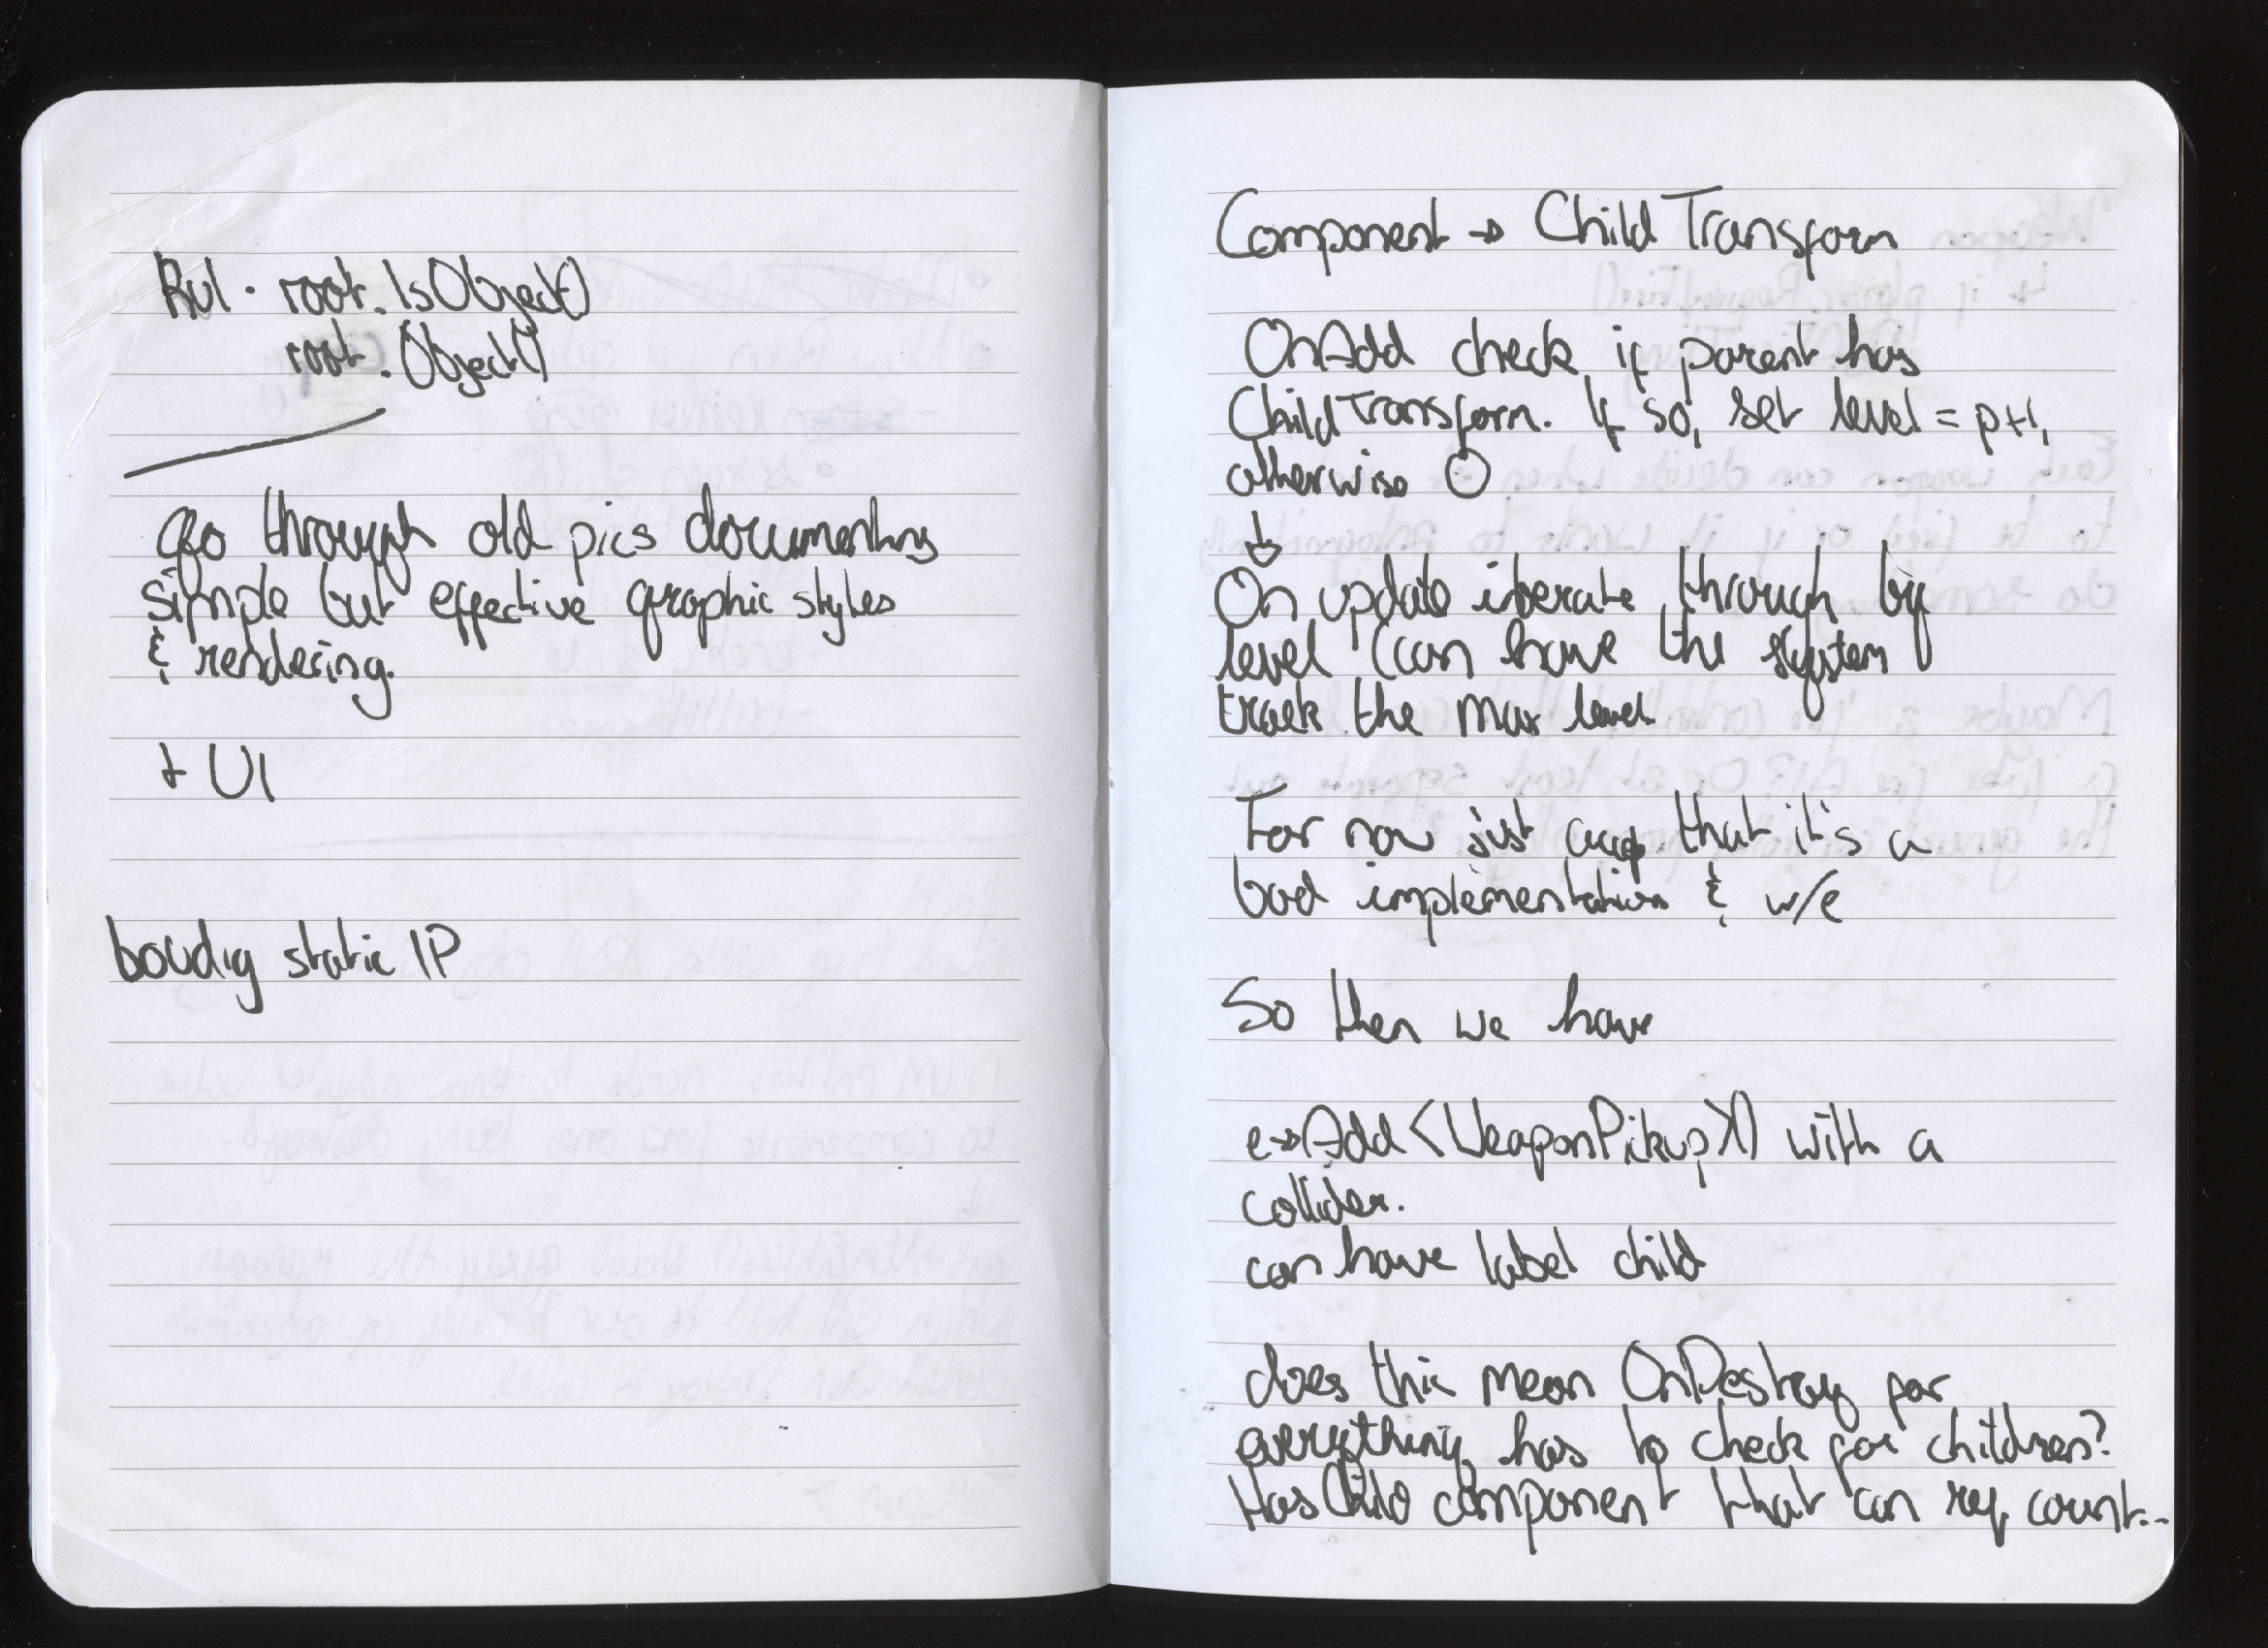 Rul. root.IsObject()
root.Object()
Go through old pics documenting
simple but effective graphic styles
& rendering.
+ UI
static IP
Component → ChildTransform
OnAdd check if parent has
ChildTransform. If so, set level = p+1,
otherwise 0
↓
On update iterate through by
level (can have the system
track the max level
For now just that it's a
bad implementation & w/e
So then we have
e→Add<WeaponPikup>() with a
collider.
can have label child
does this mean OnDestroy for
everything has to check for children?
HasChild component that can ref count...